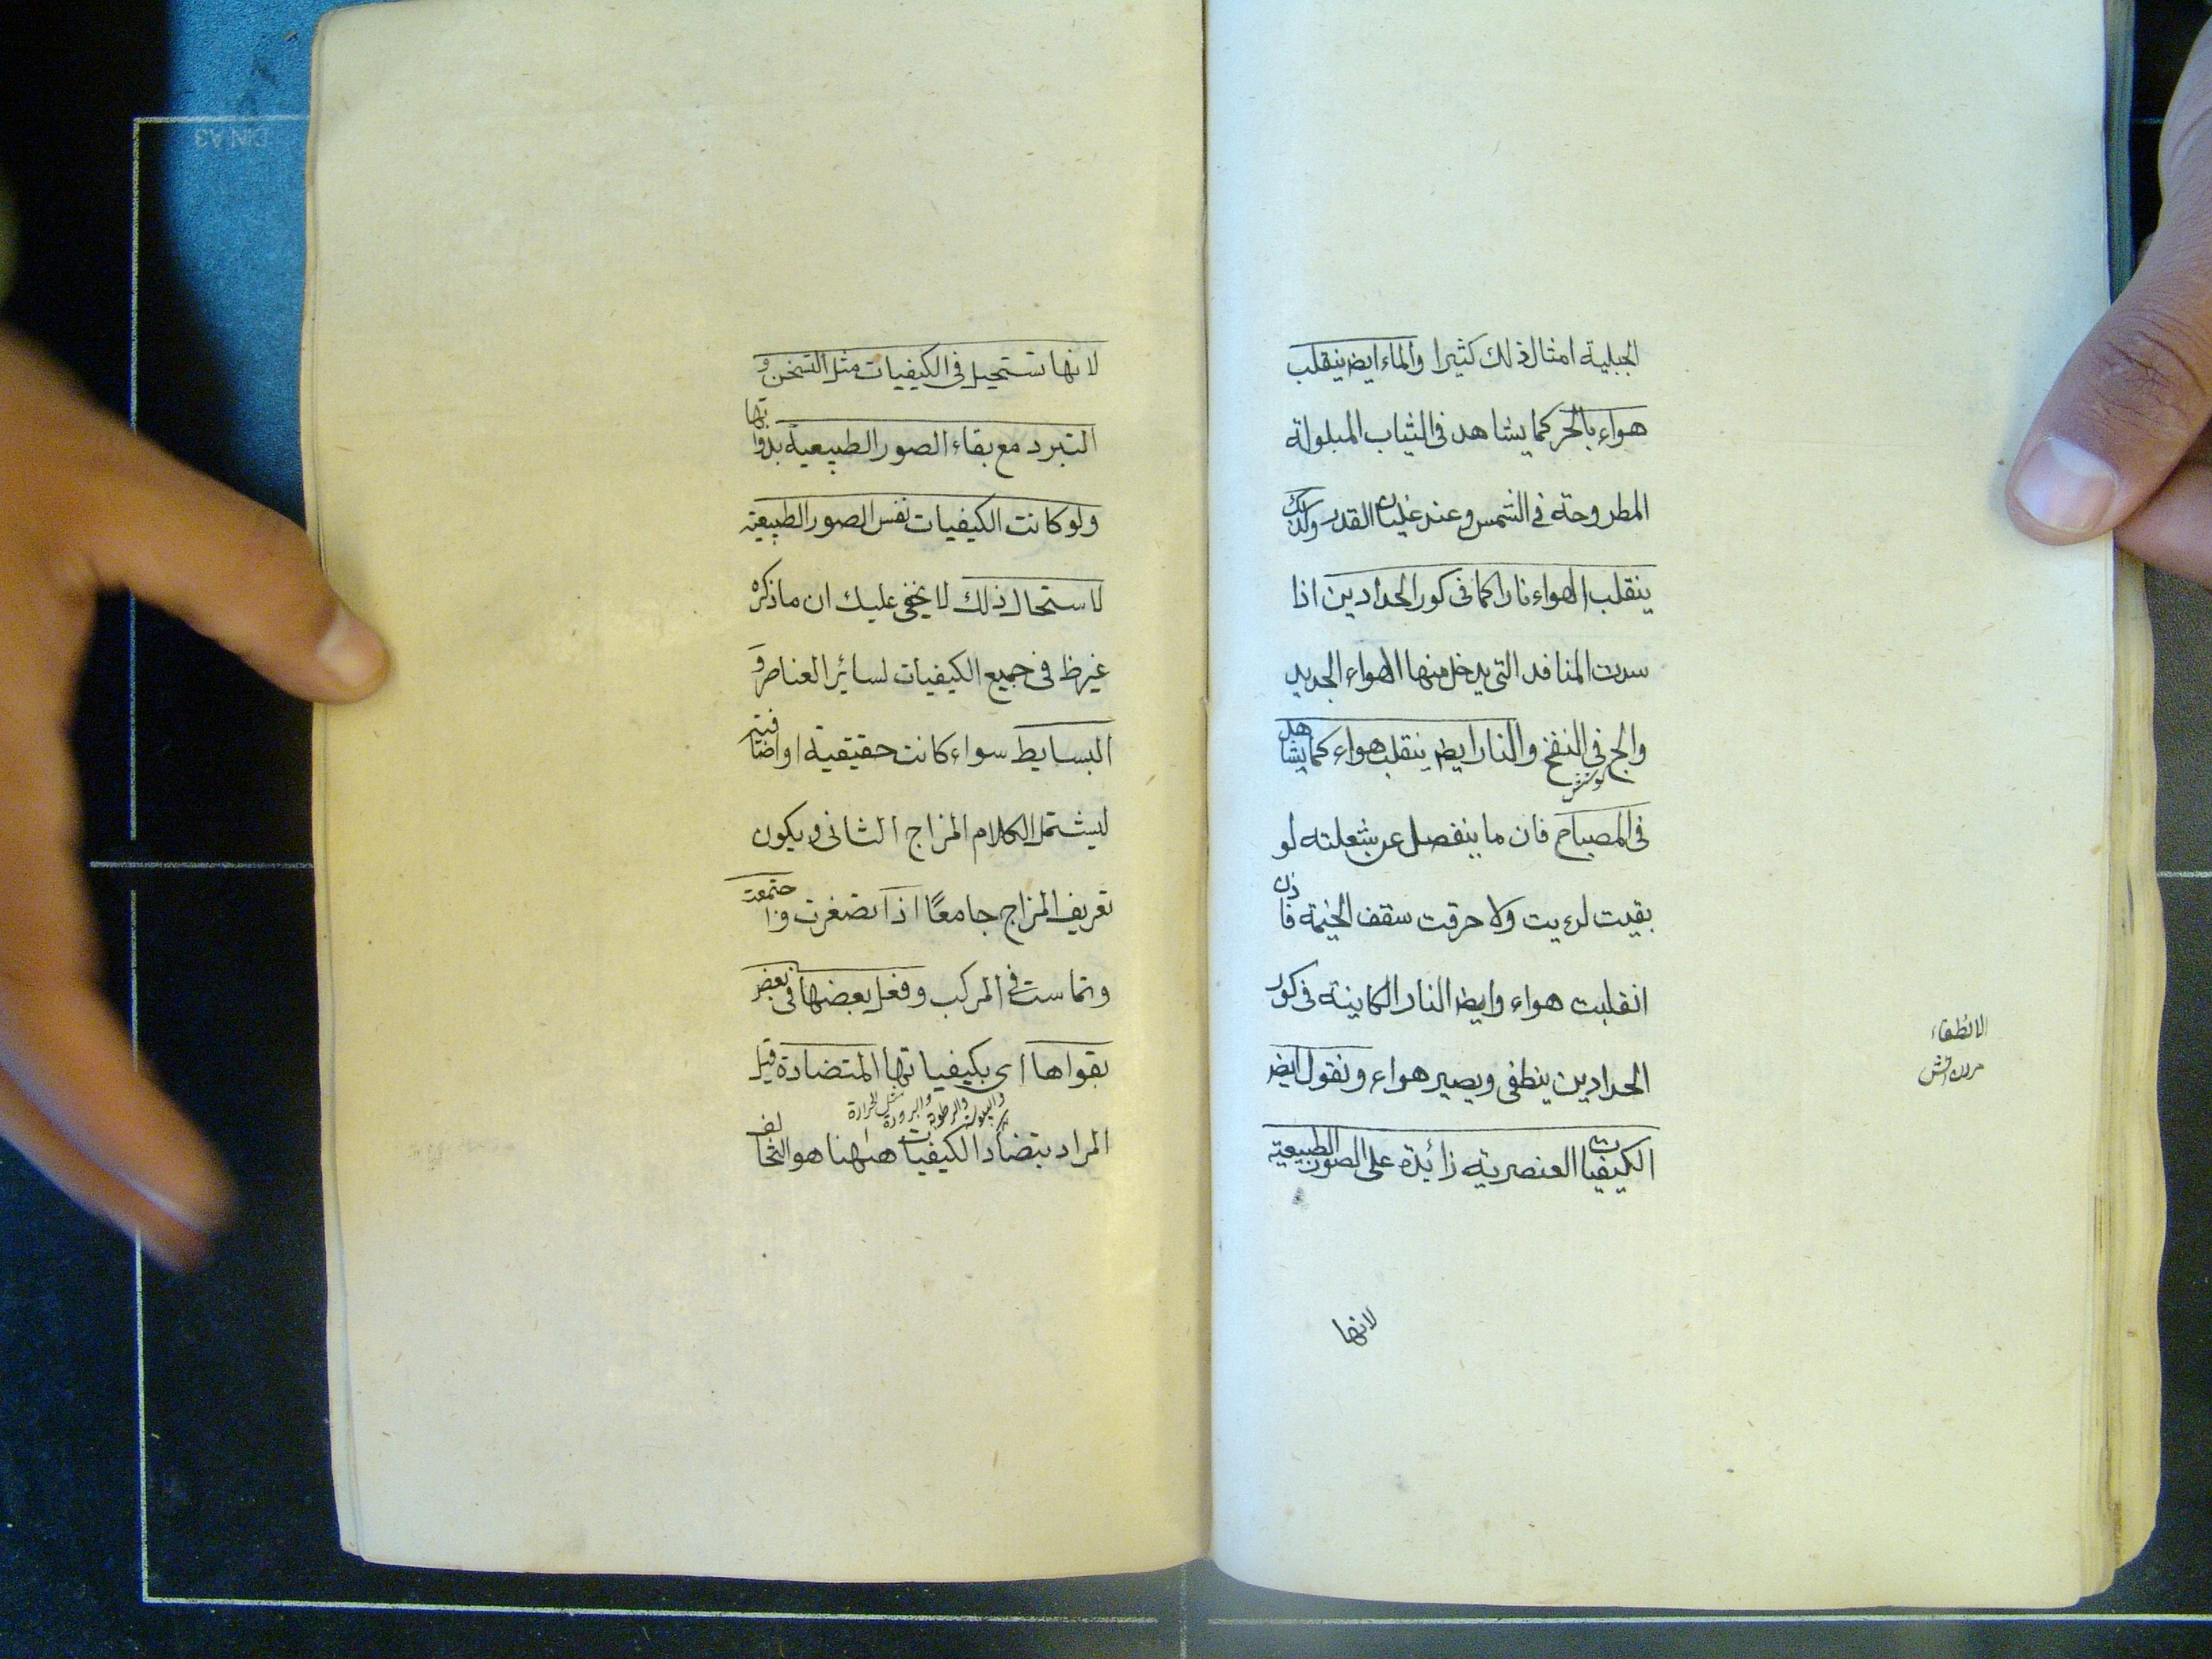 الجبلية امثال ذلك كثيرا والماء ايض ينقلب
هواء بالحر كما يشاهد فى الثياب المبلولة
المطروحة فى الشمس وعند غليان القدر وكذلك
ينقلب الهواء نارا كما فى كور الحدادين اذا
سدت المنافد التى يدخل منها الهواء الجديد
والح فى النفخ والنار ايض ينقلب هواء كما يشاهد
فى المصباح فان ما ينفصل عن شعلته لو
بقيت لرءيت ولاحرقت سقف الخيمة فاذن
انقلبت هواء وايض النار الكاينة فى كور
الحدادين ينطفى ويصير هواء ونقول ايض
الكيفيات العنصرية زائدة على الصور الطبيعية
لانها
الانطفاء
لانها تستحيل فى الكيفيات مثل التسخن و
التبرد مع بقاء الصور الطبيعية بذواتها
ولو كانت الكيفيات نفس الصور الطبيعية
لاستحال ذلك لا يخفى عليك ان ما ذكره
غير ظ فى جميع الكيفيات لسائر العناصر و
البسايط سواء كانت حقيقية او اضافية
ليشتمل الكلام المزاج الثانى ويكون
تعريف المزاج جامعًا اذا تصغرت واجتمعت
وتماست فى المركب وفعل بعضها فى بعض
بقواها اى بكيفياتها المتضادة قيل
مثل الحرارة والبرودة والرطوبة واليبوسة
المراد بتضاد الكيفيات هٰهنا هو التخالف